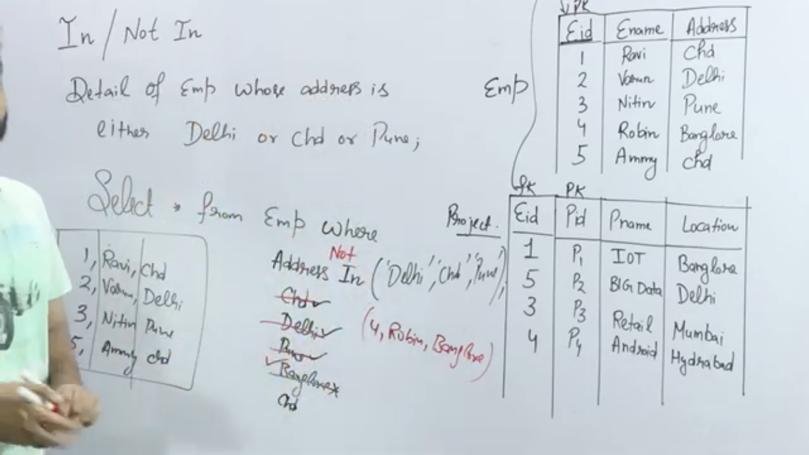 In / Not In
Detail of Emp whose address is
either Delhi or Chd or Pune;
Select * from Emp where
Not
Address In ('Delhi','Chd','Pune');
Chd
Delhi
Pune
Banglore*
Chd
(4, Robin, Banglore)
1, Ravi, Chd
2, Varun, Delhi
3, Nitin Pune
5, Ammy chd
Emp
PK
Eid Ename Address
1 Ravi Chd
2 Varun Delhi
3 Nitin Pune
4 Robin Banglore
5 Ammy Chd
Project
fk PK
Eid Pid Pname Location
1 P1 IOT Banglore
5 P2 BIG Data Delhi
3 P3 Retail Mumbai
4 P4 Android Hydrabad